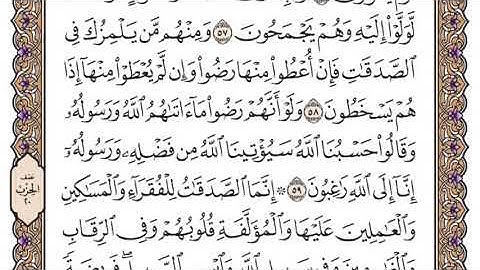 لَّوَلَّوْا۟ إِلَيْهِ وَهُمْ يَجْمَحُونَ ٥٧ وَمِنْهُم مَّن يَلْمِزُكَ فِى
ٱلصَّدَقَٰتِ فَإِنْ أُعْطُوا۟ مِنْهَا رَضُوا۟ وَإِن لَّمْ يُعْطَوْا۟ مِنْهَآ إِذَا
هُمْ يَسْخَطُونَ ٥٨ وَلَوْ أَنَّهُمْ رَضُوا۟ مَآ ءَاتَىٰهُمُ ٱللَّهُ وَرَسُولُهُۥ
وَقَالُوا۟ حَسْبُنَا ٱللَّهُ سَيُؤْتِينَا ٱللَّهُ مِن فَضْلِهِۦ وَرَسُولُهُۥٓ
إِنَّآ إِلَى ٱللَّهِ رَٰغِبُونَ ٥٩ ۞ إِنَّمَا ٱلصَّدَقَٰتُ لِلْفُقَرَآءِ وَٱلْمَسَٰكِينِ
وَٱلْعَٰمِلِينَ عَلَيْهَا وَٱلْمُؤَلَّفَةِ قُلُوبُهُمْ وَفِى ٱلرِّقَابِ
نصف
الحزب
٢٠